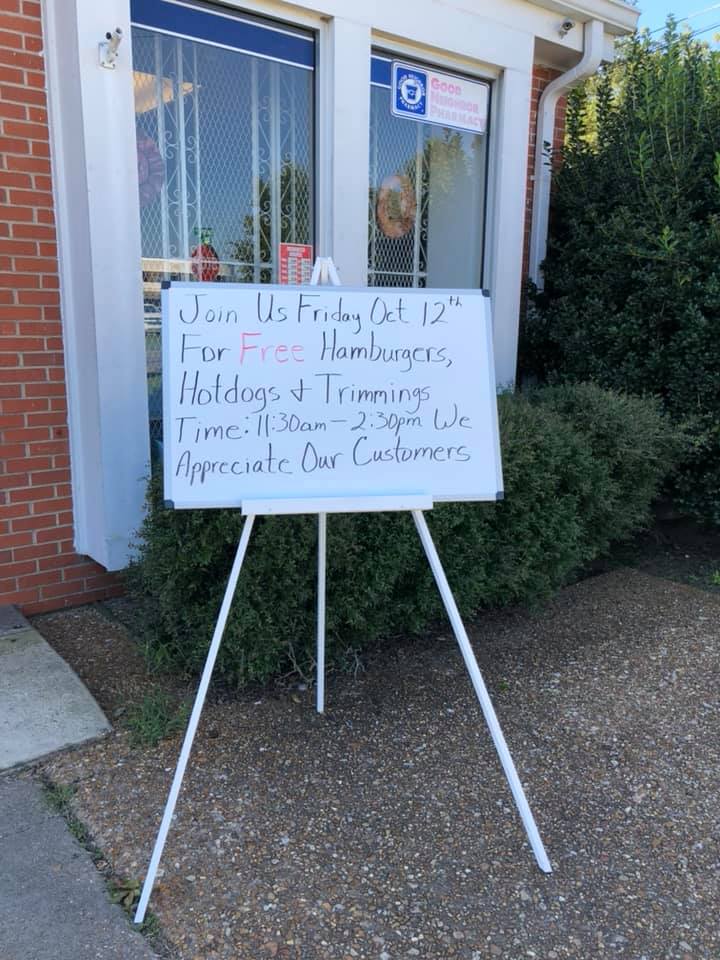 GOOD
NEIGHBOR
PHARMACY
Join Us Friday Oct 12th
For Free Hamburgers,
Hotdogs & Trimmings
Time: 11:30am - 2:30pm We
Appreciate Our Customers